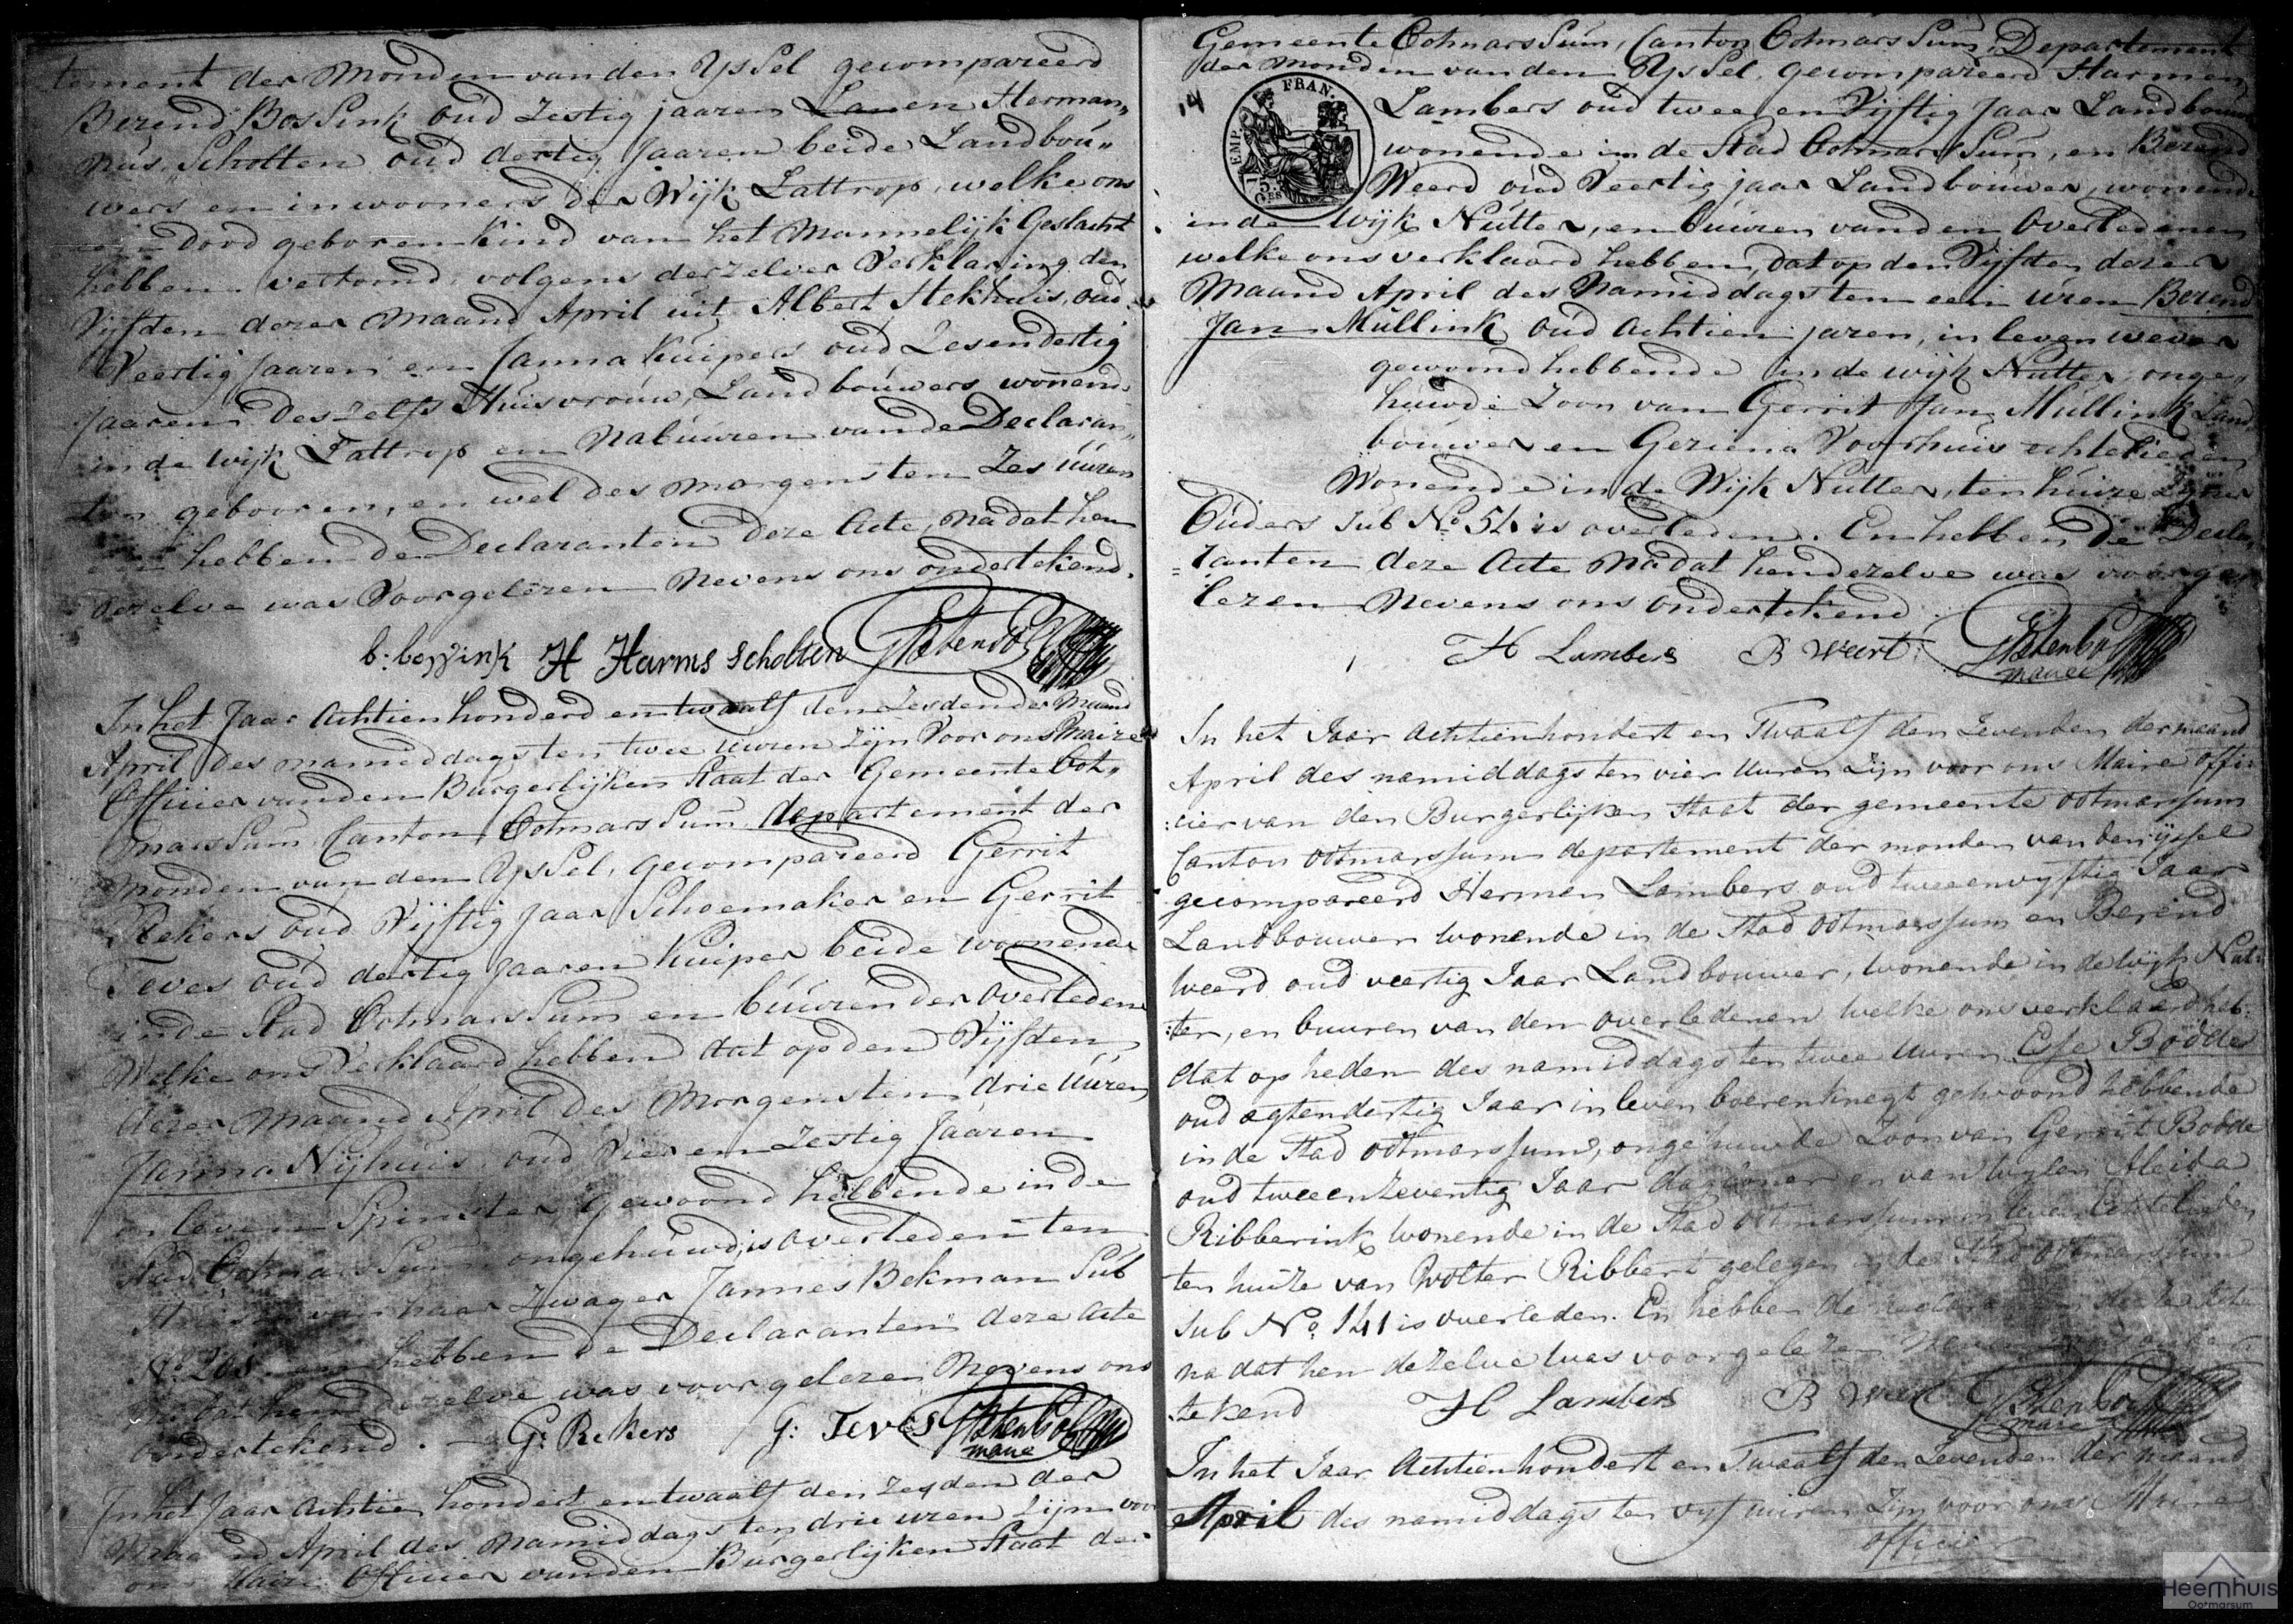 tement der Monden van den YsSel gecompareerd
Berend BosSink oud Zestig jaaren Lanen Herman„
nus Scholten oud dertig Jaaren beide Landbou„
wers en inwooners der Wijk Lattrop, welke ons
een dood geboren Kind van het Mannelijk Geslacht
hebben vertoond, volgens derzelver Verklaring den
Vijfden dezer Maand April uit Albert Stekhuis, oud
Veertig Jaaren en Janna Kuipers oud Zesendertig
jaaren deszelfs Huisvrouw, Landbouwers wonend
in de wijk Lattrop en Nabuuren van de Declaran„
ten gebooren, en wel des morgens ten Zes uuren
en hebben de Declaranten deze Acte, nadat hen
dezelve was Voorgelezen Nevens ons ondertekend.
b: bossink H Harms Scholten
In het Jaar Achtien honderd en twaalf den Zesden der Maand
April des namiddags ten twee uuren zijn Voor ons Maire
Officier van den Burgerlijken Staat der Gemeente Oot„
marsSum, Canton OotmarsSum departement der
Monden van den YsSel, gecompareerd Gerrit
Rekers oud Vijftig Jaar Schoemaker en Gerrit
Teves oud dertig Jaaren Kuiper beide woonende
in de Stad OotmarsSum en buuren der Overledene
Welke ons Verklaard hebben dat op den Vijfden
dezer Maand April des Morgens ten drie Uuren
Janna Nijhuis oud Vier en Zestig Jaaren
in leven Spinster, gewoond hebbende in de
Stad OotmarsSum ongehuwd, is Overleden ten
Huise van haar Zwager Jannes Bekman Sub
No. 268. en hebben de Declaranten deze Acte
nadat hen dezelve was voorgelezen Nevens ons
ondertekend. G: Rekers G: Teves
maire
In het Jaar Achtien hondert en twaalf den Zesden der
Maand April des Namiddags ten drie uren zijn voor
ons Maire Officier van den Burgerlijken Staat der
Gemeente OotmarsSum, Canton OotmarsSum, Departement
der Monden van den YsSel, gecompareerd Harmen
14
EMP. FRAN.
Lambers oud twee en Vijftig Jaar Landbouwer
wonende in de Stad OotmarsSum, en Berend
Weerd oud Veertig jaar Landbouwer, wonende
in de Wijk Nutter, en buuren van den Overledenen
welke ons verklaard hebben, dat op den Vijfden dezer
Maand April des Namiddags ten een uren Berend
Jan Mullink oud Achtien jaren, in leven wever
gewoond hebbende in de wijk Nutter, onge„
huwde Zoon van Gerrit Jan Mullink Land„
bouwer en Geziena Voorhuis echtelieden
Wonende in de Wijk Nutter, ten huize Zijner
Ouders Sub No. 54 is overleden. En hebben de Decla„
=ranten deze Acte Nadat hen dezelve was voorge„
lezen Nevens ons ondertekend
H Lambers B Weert
maire
In het Jaar Achtienhondert en Twaalf den Zevenden der maand
April des namiddags ten vier Uuren Zijn voor ons Maire Offi„
:cier van den Burgerlijken Staat der gemeente Ootmarssum
Canton Ootmarssum departement der monden van den ijssel
gecompareerd Hermen Lambers oud tweeenvyftig Jaar
Landbouwer Wonende in de Stad Ootmarssum en Berend
Weerd oud veertig Jaar Landbouwer, Wonende in de Wijk Nut:
:ter, en buuren van den overledenen welke ons verklaard heb:
dat op heden des namiddags ten twee Uuren Ese Bodde
oud agtendertig Jaar in leven boerenknegt gewoond hebbende
in de Stad Ootmarssum, ongehuwde Zoon van Gerrit Bodde
oud tweeenzeventig Jaar dagloner en van Wylen Aleida
Ribberink Wonende in de Stad Ootmarssum in leven Echtelieden
ten huize van Wolter Ribbert gelegen in de Stad Ootmarssum
Sub No. 141 is overleden. En hebben de deze Acte
na dat hen dezelve was voorgelezen
:tekend H Lambers B Weert
maire
In het Jaar Achtienhondert en Twaalf den Zevenden der maand
April des namiddags ten vyf uuren Zijn voor ons Maire
Officier
Heemhuis
Ootmarsum